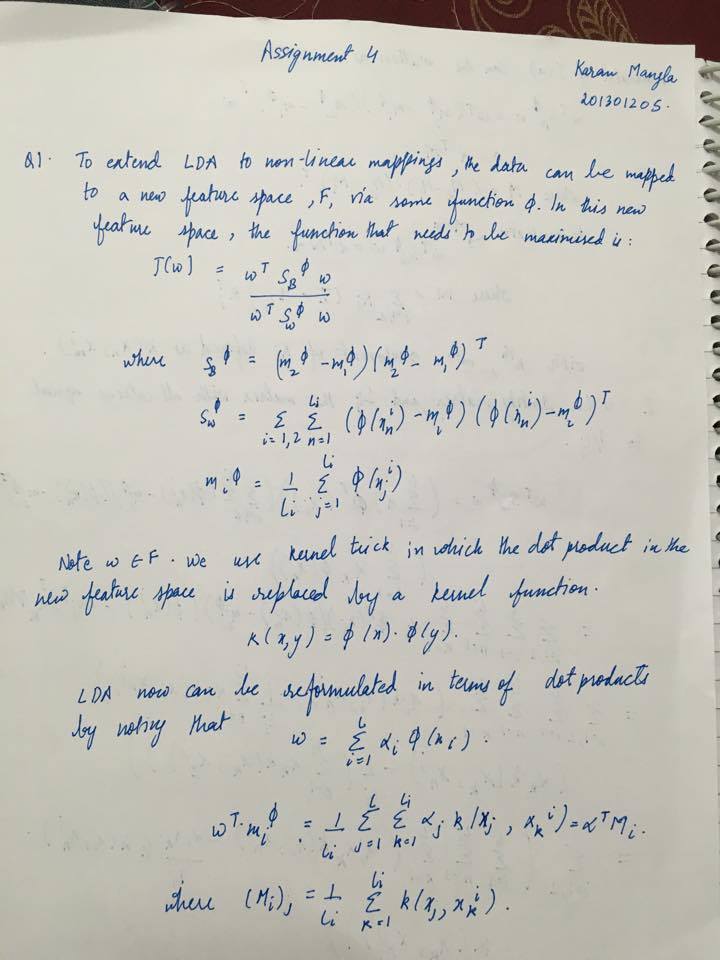 Assignment 4
Karan Mangla
201301205.
Q1. To extend LDA to non-linear mappings, the data can be mapped
to a new feature space, F, via some function ϕ. In this new
feature space, the function that needs to be maximised is:
J(w) = w^T S_B^ϕ w / w^T S_w^ϕ w
where S_B^ϕ = (m_2^ϕ - m_1^ϕ)(m_2^ϕ - m_1^ϕ)^T
S_w^ϕ = Σ_{i=1,2} Σ_{n=1}^{Li} (ϕ(x_n^i) - m_i^ϕ)(ϕ(x_n^i) - m_i^ϕ)^T
m_i^ϕ = 1/Li Σ_{j=1}^{Li} ϕ(x_j^i)
Note w ∈ F. We use kernel trick in which the dot product in the
new feature space is replaced by a kernel function.
k(x,y) = ϕ(x)·ϕ(y).
LDA now can be reformulated in terms of dot products
by noting that w = Σ_{i=1}^{L} α_i ϕ(x_i).
w^T·m_i^ϕ = 1/Li Σ_{j=1}^{L} Σ_{k=1}^{Li} α_j k(x_j, x_k^i) = α^T M_i.
where (M_i)_j = 1/Li Σ_{k=1}^{Li} k(x_j, x_k^i).